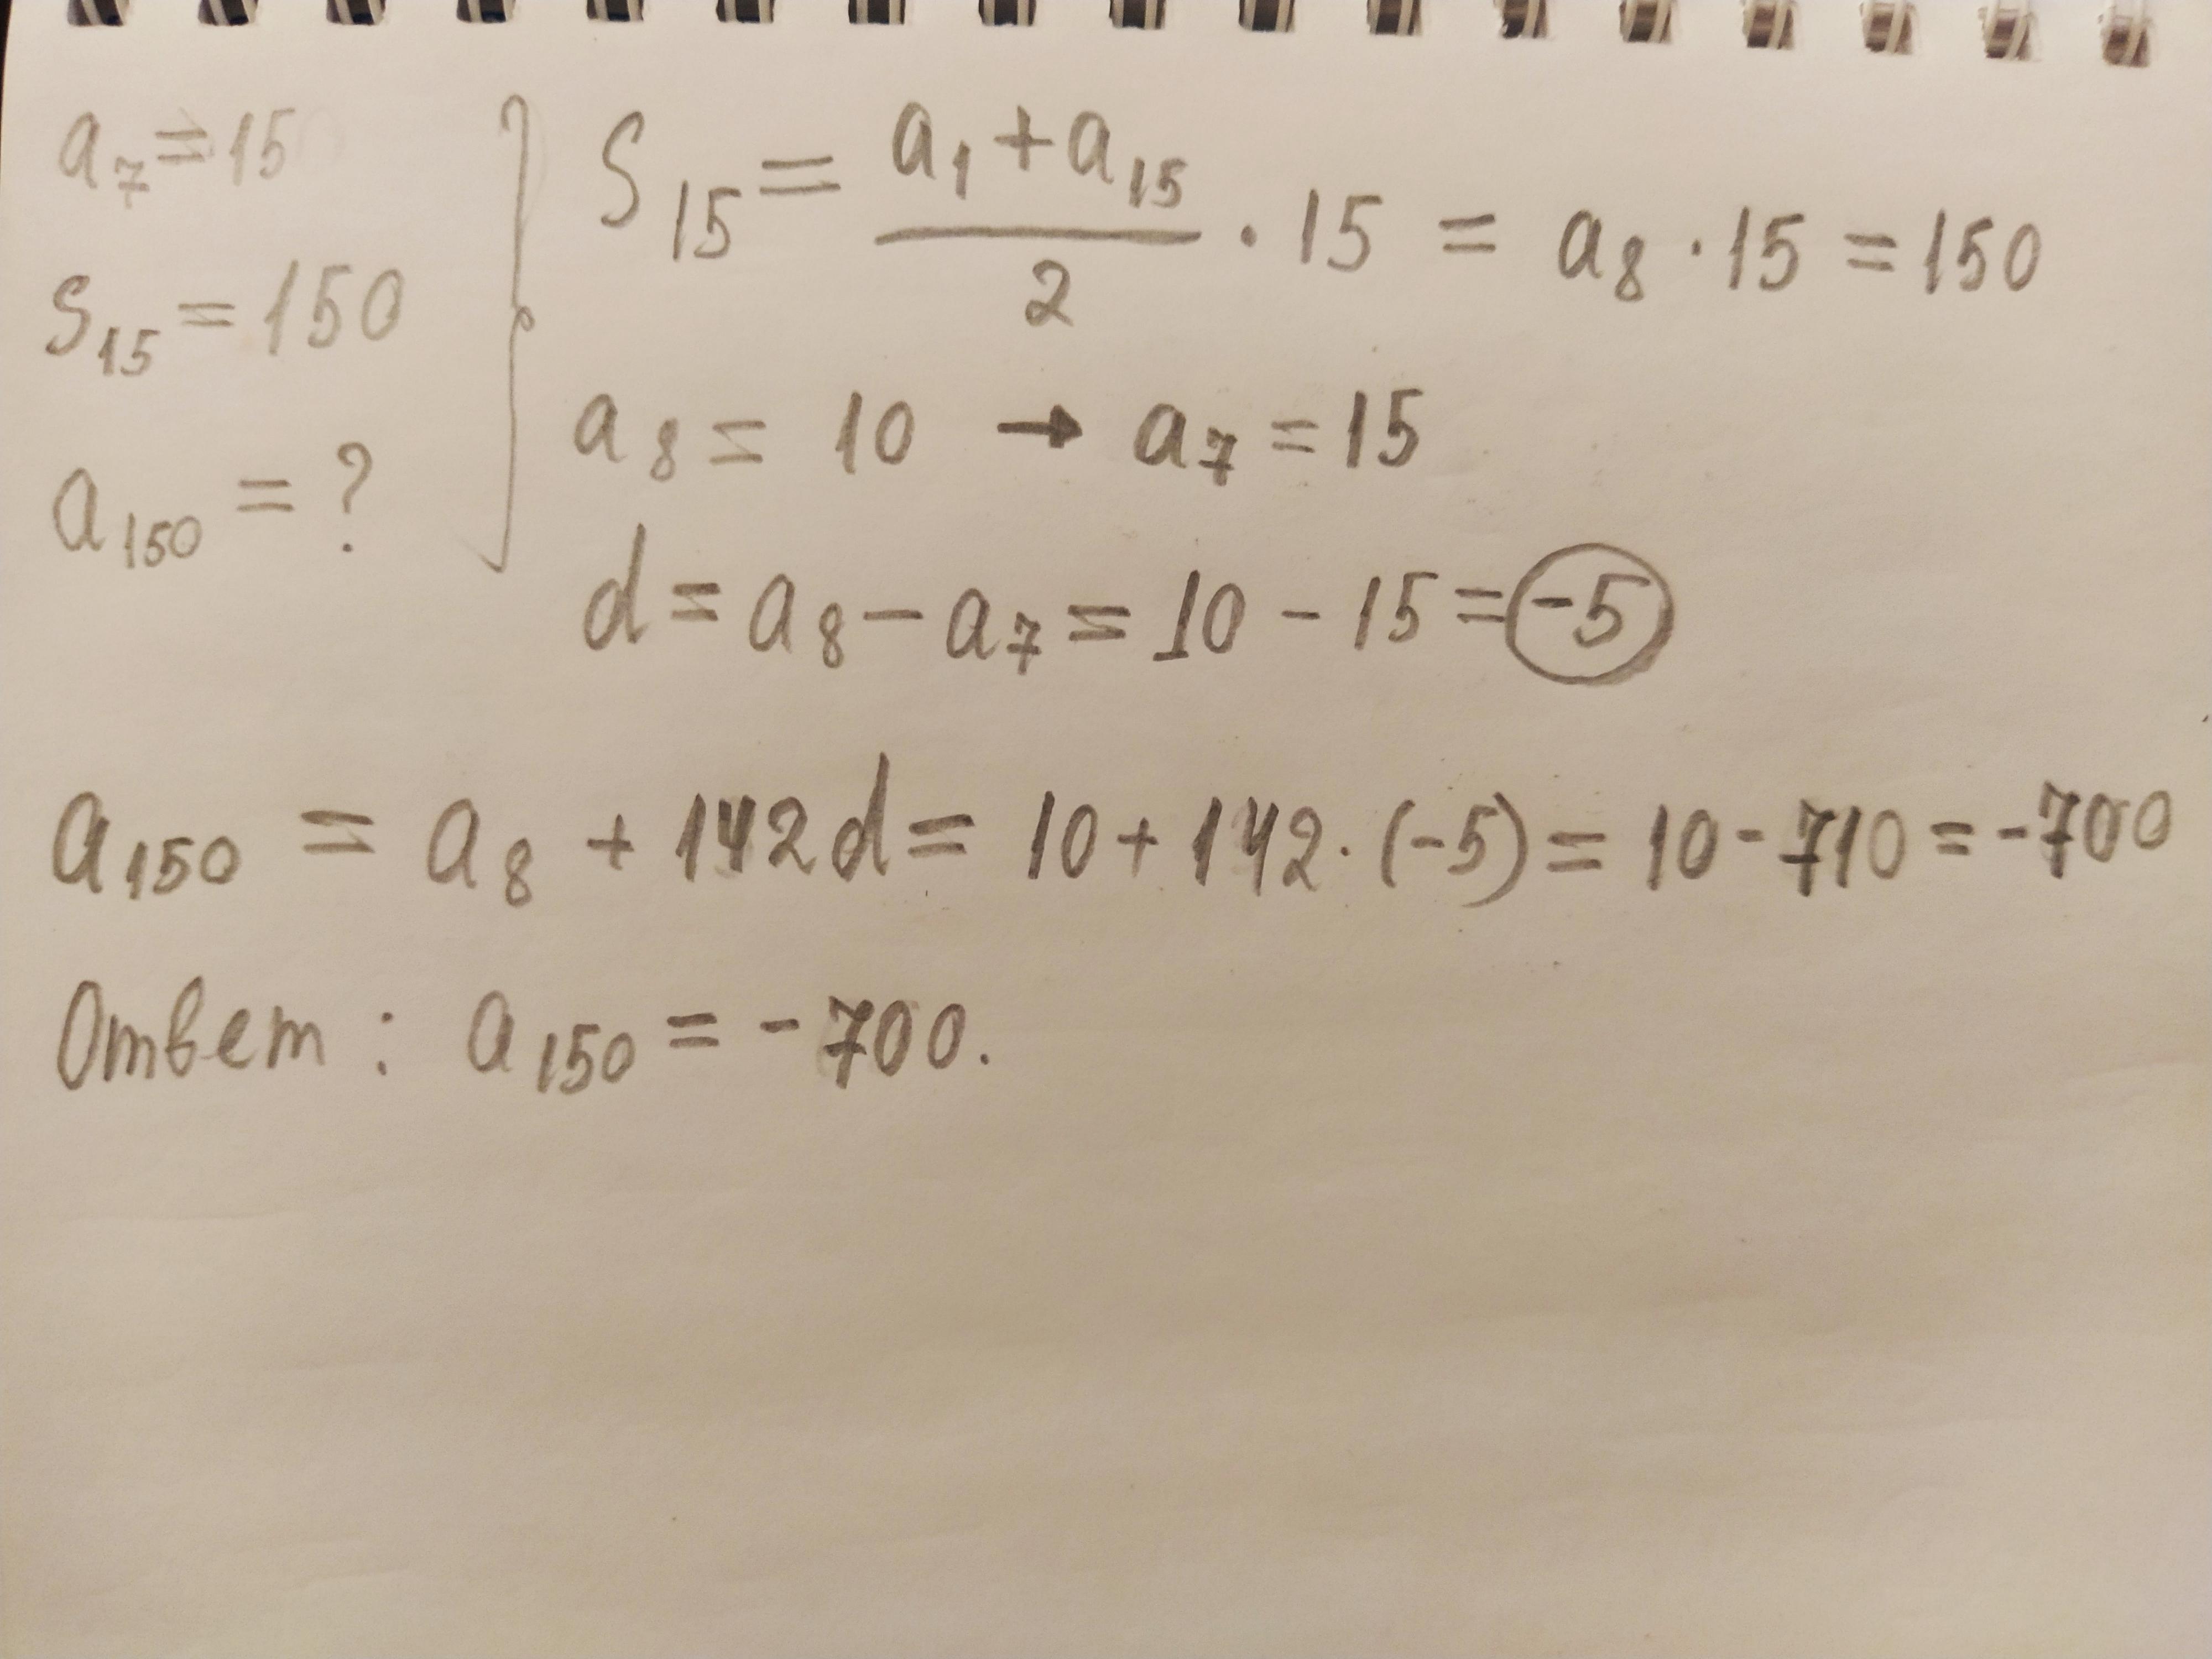 a₇ = 15
S₁₅ = 150
a₁₅₀ = ?
S₁₅ = (a₁ + a₁₅)/2 · 15 = a₈ · 15 = 150
a₈ = 10 → a₇ = 15
d = a₈ − a₇ = 10 − 15 = −5
a₁₅₀ = a₈ + 142d = 10 + 142 · (−5) = 10 − 710 = −700
Ответ: a₁₅₀ = −700.